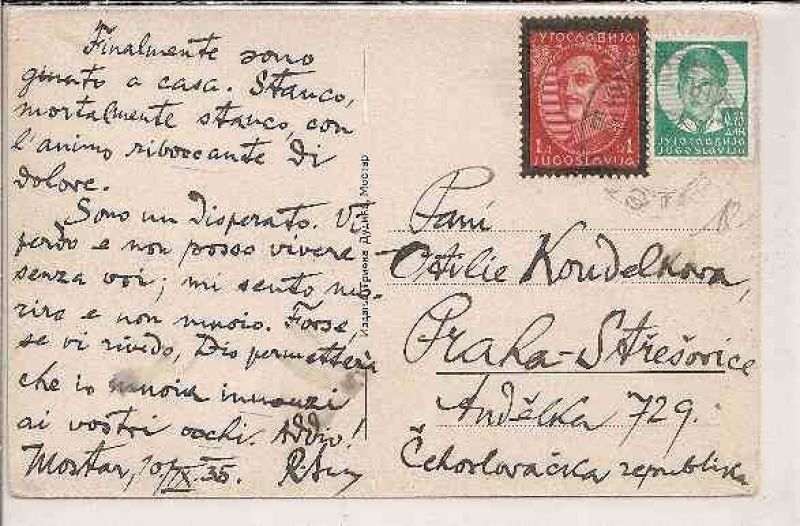 Finalmente sono
giunto a casa. Stanco,
mortalmente stanco, con
l'animo riboccante di
dolore.
Sono un disperato. Vi
perdo e non posso vivere
senza voi; mi sento mo-
rire e non muoio. Forse,
se vi rivedo, Dio permetterà
che io muoia innanzi
ai vostri occhi. Addio!
Mostar, 10/IX. 35.
Издање Трифка Дудића, Мостар
ЈУГОСЛАВИЈА
1 Д 1
JUGOSLAVIJA
ЈУГОСЛАВИЈА
JUGOSLAVIJA
Paní
Otilie Koudelkova,
Praha-Střešovice
Andělka 729.
Čehoslovačka republika